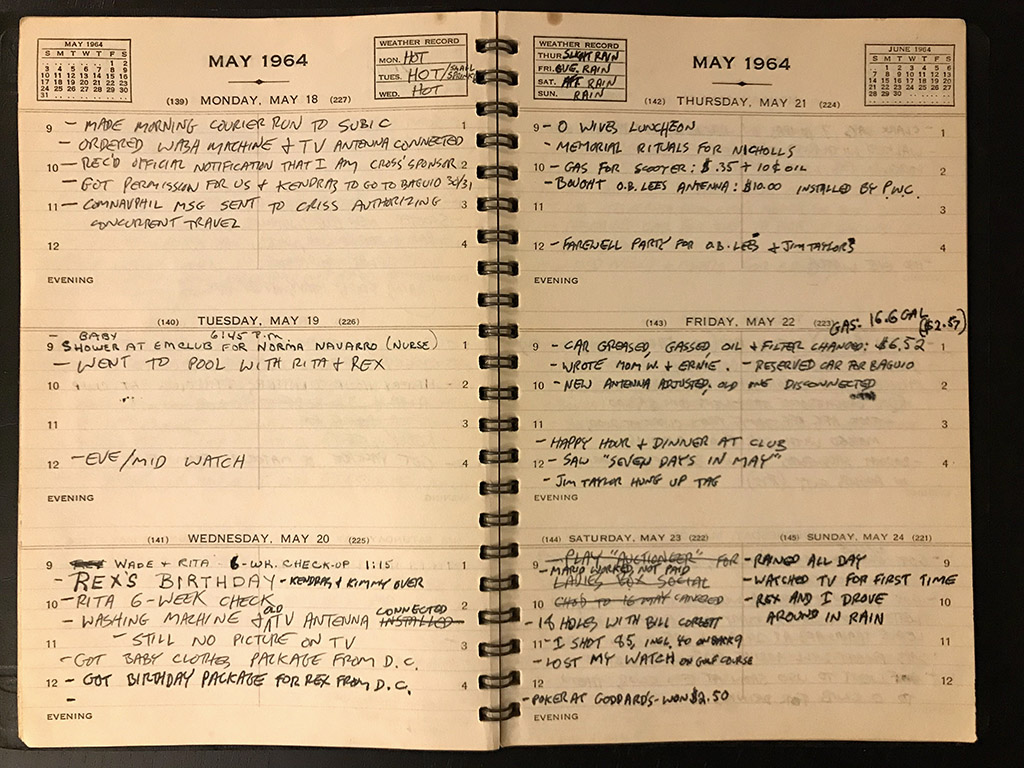 MAY 1964
S M T W T F S
1 2
3 4 5 6 7 8 9
10 11 12 13 14 15 16
17 18 19 20 21 22 23
24 25 26 27 28 29 30
31
MAY 1964
WEATHER RECORD
MON. HOT
TUES. HOT/
WED. HOT
(139) MONDAY, MAY 18 (227)
9 - MADE MORNING COURIER RUN TO SUBIC 1
- ORDERED WABA MACHINE & TV ANTENNA CONNECTED
10 - REC'D OFFICIAL NOTIFICATION THAT I AM CROSS' SPONSOR 2
- GOT PERMISSION FOR US & KENDRAS TO GO TO BAGUIO 30/31
11 - COMNAVPHIL MSG SENT TO CRISS AUTHORIZING 3
CONCURRENT TRAVEL
12 4
EVENING
(140) TUESDAY, MAY 19 (226)
- BABY 6:45 P.M.
9 SHOWER AT EMCLUB FOR NORMA NAVARRO (NURSE) 1
- WENT TO POOL WITH RITA & REX
10 2
11 3
12 - EVE/MID WATCH 4
EVENING
(141) WEDNESDAY, MAY 20 (225)
9 WADE & RITA - 6-WK. CHECK-UP 1:15 1
- REX'S BIRTHDAY - KENDRAS & KIMMY OVER
10 - RITA 6-WEEK CHECK 2
- WASHING MACHINE & OLD TV ANTENNA INSTALLED CONNECTED
- STILL NO PICTURE ON TV
11 3
- GOT BABY CLOTHES PACKAGE FROM D.C.
12 - GOT BIRTHDAY PACKAGE FOR REX FROM D.C. 4
-
EVENING
WEATHER RECORD
THUR. SLIGHT RAIN
FRI. EVE. RAIN
SAT. AFT RAIN
SUN. RAIN
MAY 1964
JUNE 1964
S M T W T F S
1 2 3 4 5 6
7 8 9 10 11 12 13
14 15 16 17 18 19 20
21 22 23 24 25 26 27
28 29 30
(142) THURSDAY, MAY 21 (224)
9 - O WIVES LUNCHEON 1
- MEMORIAL RITUALS FOR NICHOLLS
10 - GAS FOR SCOOTER: $.35 + 10¢ OIL 2
- BOUGHT O.B. LEES ANTENNA: $10.00 INSTALLED BY P.W.C.
11 3
12 - FAREWELL PARTY FOR O.B. LEES & JIM TAYLORS 4
EVENING
(143) FRIDAY, MAY 22 (223)
GAS - 16.6 GAL ($2.57)
9 - CAR GREASED, GASSED, OIL & FILTER CHANGED: $6.52 1
- WROTE MOM W. & ERNIE. - RESERVED CAR FOR BAGUIO
10 - NEW ANTENNA ADJUSTED, OLD ONE DISCONNECTED 2
11 3
- HAPPY HOUR & DINNER AT CLUB
12 - SAW "SEVEN DAYS IN MAY" 4
- JIM TAYLOR HUNG UP TAG
EVENING
(144) SATURDAY, MAY 23 (222)
9 - PLAY "AUCTIONEER" FOR
- MARIO WORKED, NOT PAID
LADIES BOX SOCIAL
10 CANCELED
- 18 HOLES WITH BILL CORBETT
11 - I SHOT 85, INCL. 40 ON BACK 9
- LOST MY WATCH ON GOLF COURSE
12
- POKER AT GODDARD'S - WON $2.50
EVENING
(145) SUNDAY, MAY 24 (221)
- RAINED ALL DAY 9
- WATCHED TV FOR FIRST TIME
- REX AND I DROVE 10
AROUND IN RAIN
11
12